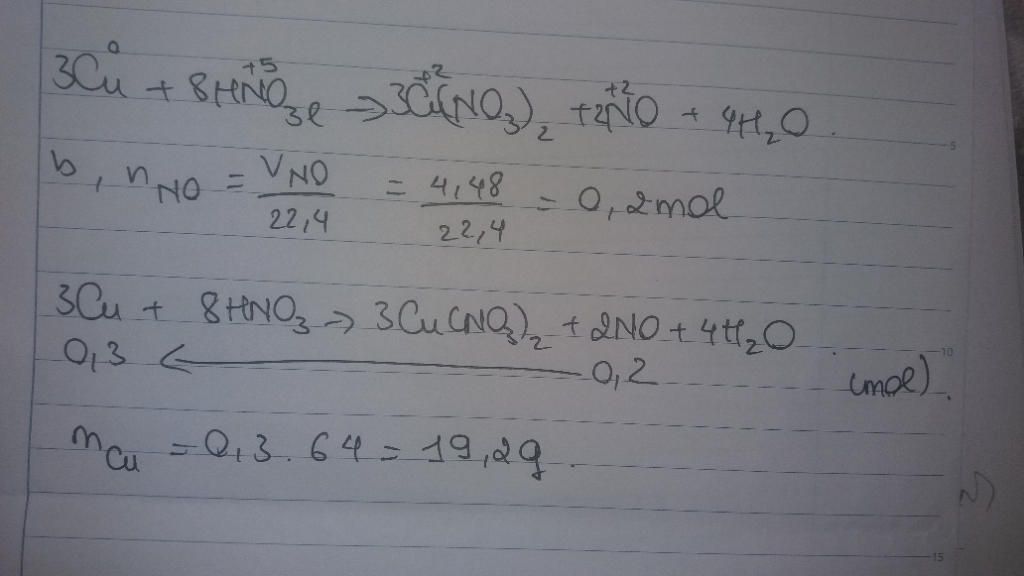 3Cu⁰ + 8HN⁺⁵O₃ₗ → 3Cu⁺²(NO₃)₂ + 2N⁺²O + 4H₂O.
b, nNO = VNO/22,4 = 4,48/22,4 = 0,2mol
3Cu + 8HNO₃ → 3Cu(NO₃)₂ + 2NO + 4H₂O.
0,3 ← 0,2 (mol).
mCu = 0,3 . 64 = 19,2g.
5
10
15